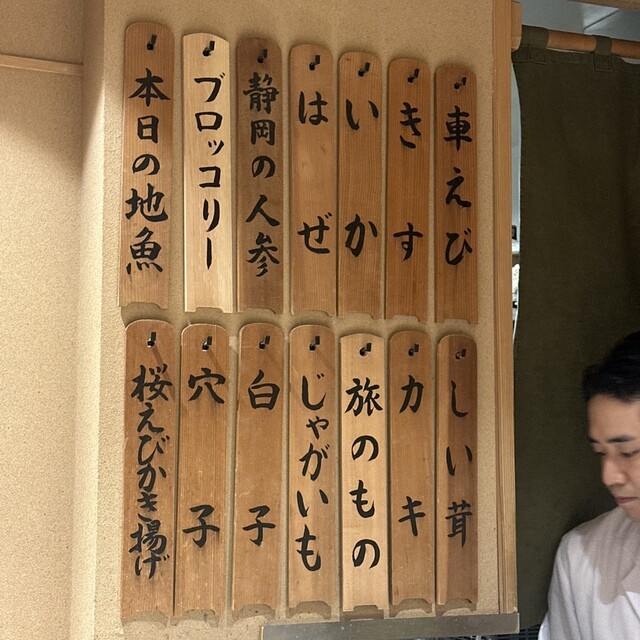 車えび
きす
いか
はぜ
静岡の人参
ブロッコリー
本日の地魚
しい茸
カキ
旅のもの
じゃがいも
白子
穴子
桜えびかき揚げ